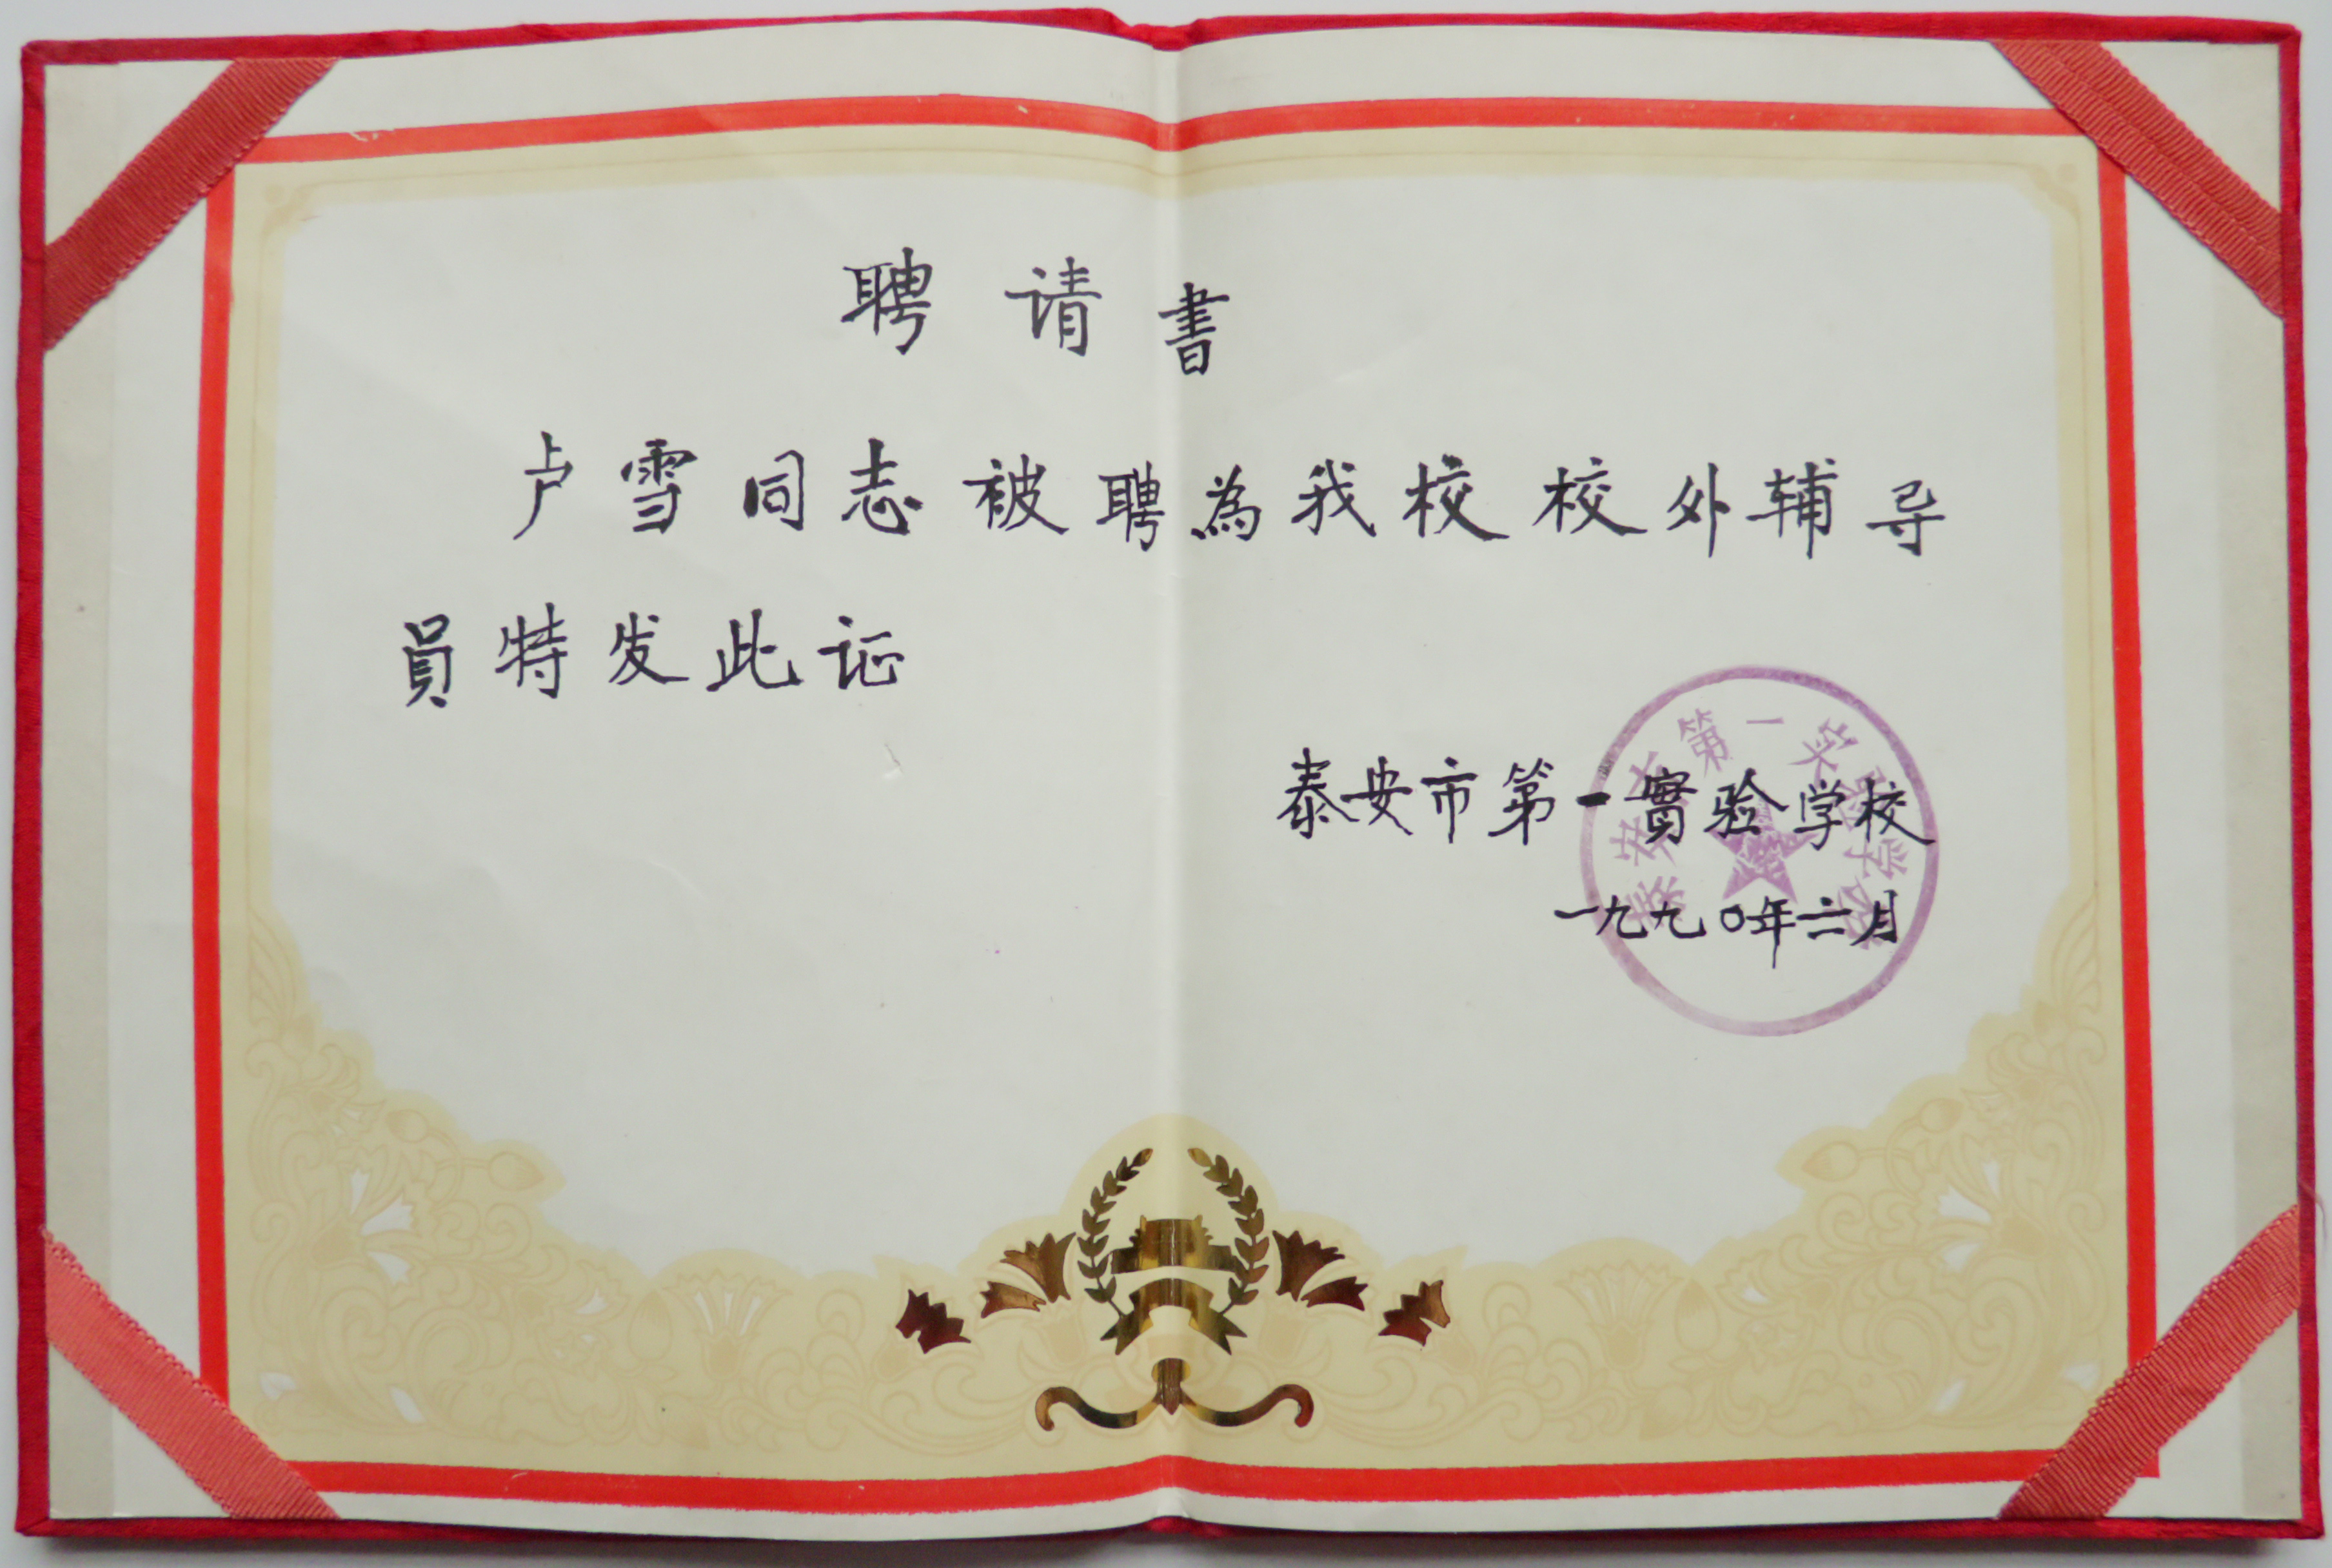 聘请書
卢雪同志被聘為我校校外辅导
員特发此证
泰安市第一實验学校
一九九〇年六月
泰安市第一实验学校